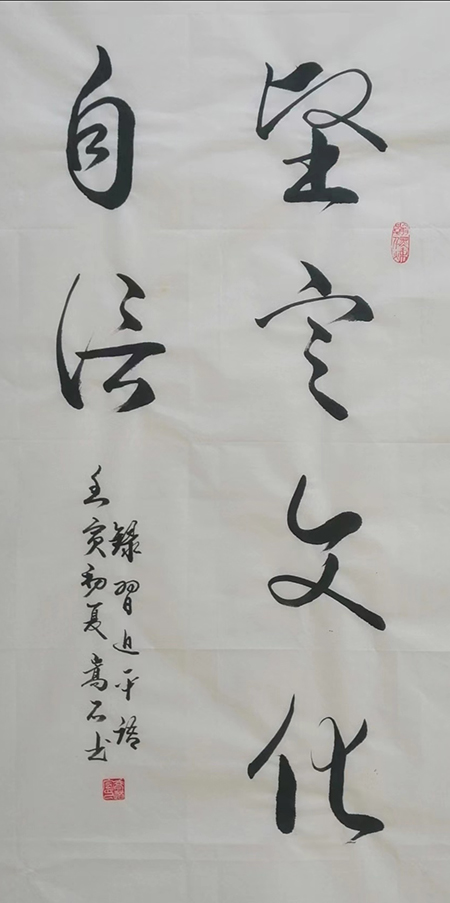 坚定文化
自信
録習近平语
壬寅初夏嵩石书